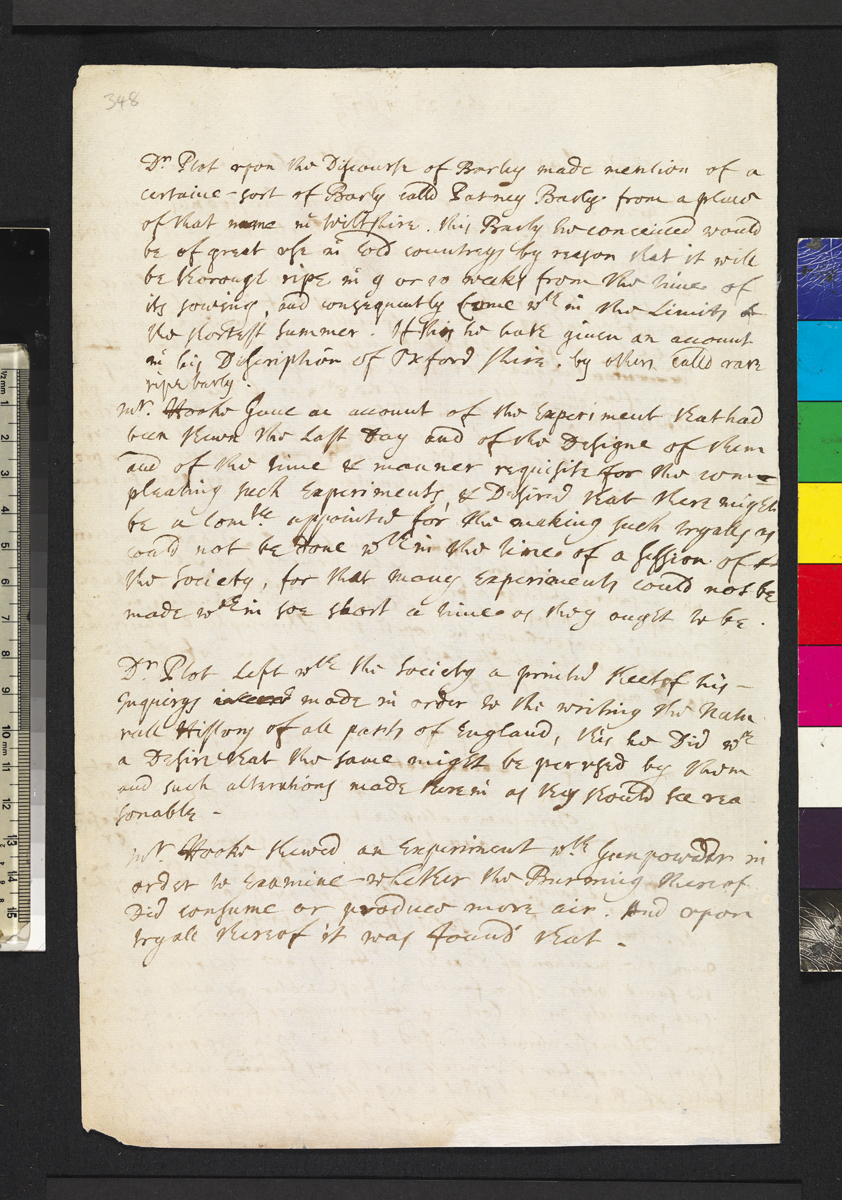 348
Dr Plot upon the Discourse of Barley made mention of a
certaine sort of Barly calld Patney Barly from a place
of that name in Wiltshire. this Barly he conceived would
be of great use in cold countreys by reason that it will
be thorough ripe in 9 or 10 weeks from the time of
its sowing, and consequently Come wth in the Limits of
the shortest Summer. Of this he hath given an account
in his Discription of Oxford shire. by others calld rare
ripe barly.
Mr. Hooke Gave an account of the Experiment that had
been shewn the Last Day and of the Designe of them
and of the time & manner requisite for the com=
pleating such Experiments, & Desired that there might
be a Comtee appointed for the making such tryalls as
could not be Done wthin the time of a Session of
the Society, for that many Experiments could not be
made wthin soe short a time as they ought to be.
Dr Plot Left wth the Society a printed sheet of his
Enquirys made in order to the writing the Natu
rall History of all parts of England, this he Did wth
a Desire that the same might be perused by them
and such alterations made therein as they should see rea
sonable -
Mr. Hooke shewed an Experiment wth Gunpowder in
order to Examine whether the Burning thereof
Did consume or produce more air. And upon
tryall thereof it was found that -